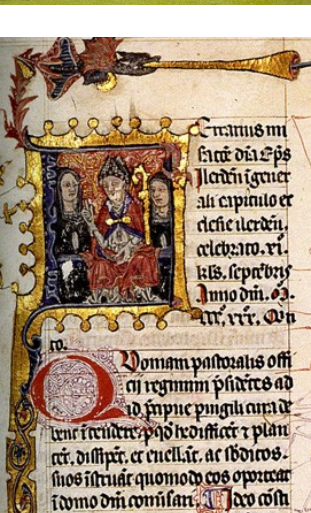 miseratione diã Eps
Ilerdeñ i geñer
ali capitulo et
clesie ilerdeñ.
celebrato. xi.
kls. septẽbris
Anno dñi. M.
CCC. xxx.
to.
Qoniam pastoralis offi
cij regimini psidẽtes ad
id ppue puigili cura de
bent itendere, ꝑqđ hedificẽt ⁊ plan
tẽt. dissipẽt. et euellãt. ac sbditos.
suos istruãt quomodo eos oporteat
i domo dñi conuersari Ideo cõsti